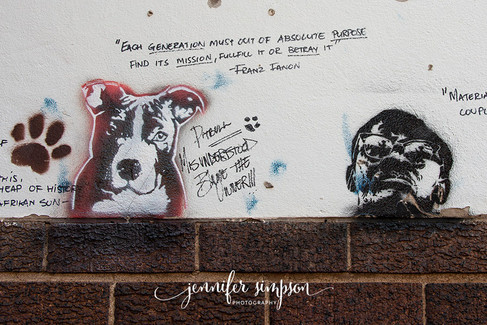 "EACH GENERATION MUST OUT OF ABSOLUTE PURPOSE
FIND ITS MISSION, FULLFILL IT OR BETRAY IT"
-FRANZ FANON
"MATERIA
COUPL
PITBULL
"MISUNDERSTOOD
BLAME THE
OWNER!!!
F
THIS.
HEAP OF HISTORY
AFRIKAN SUN-
jennifer simpson
PHOTOGRAPHY